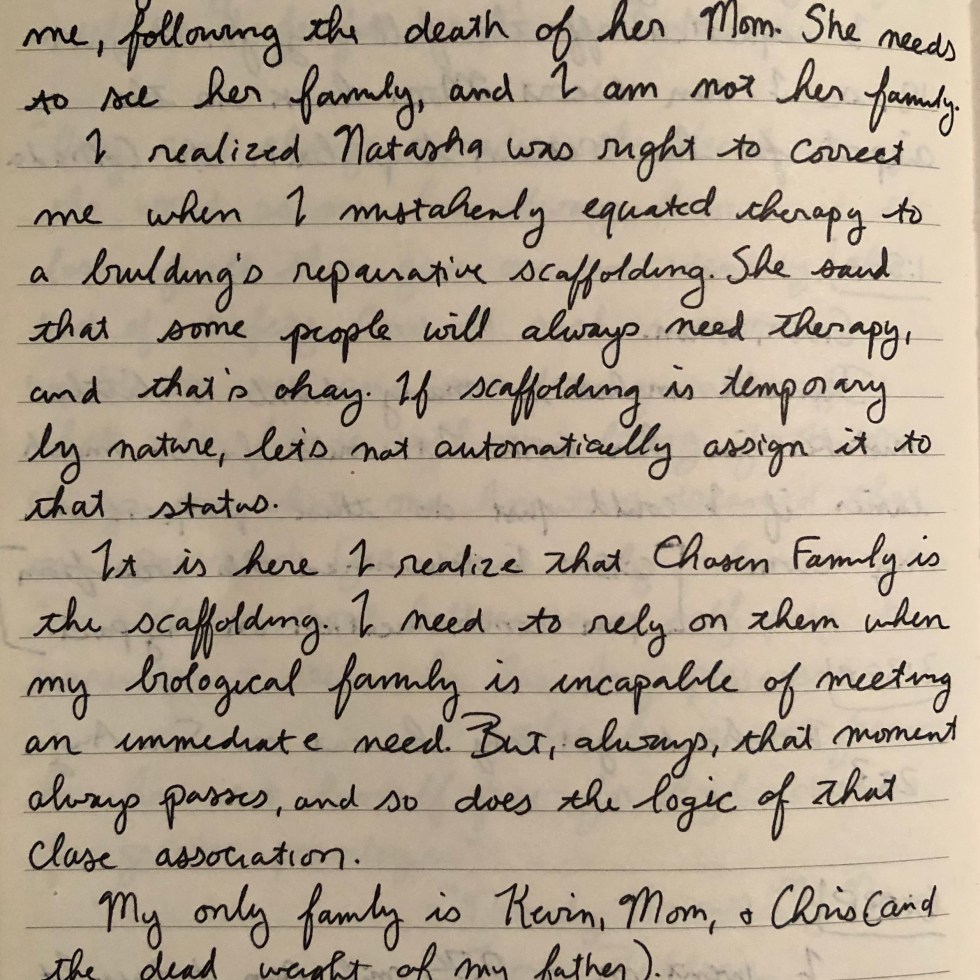 me, following the death of her Mom. She needs
to see her family, and I am not her family.
I realized Natasha was right to correct
me when I mistakenly equated therapy to
a building's reparative scaffolding. She said
that some people will always need therapy,
and that's okay. If scaffolding is temporary
by nature, let's not automatically assign it to
that status.
It is here I realize that Chosen Family is
the scaffolding. I need to rely on them when
my biological family is incapable of meeting
an immediate need. But, always, that moment
always passes, and so does the logic of that
close association.
My only family is Kevin, Mom, & Chris (and
the dead weight of my father).